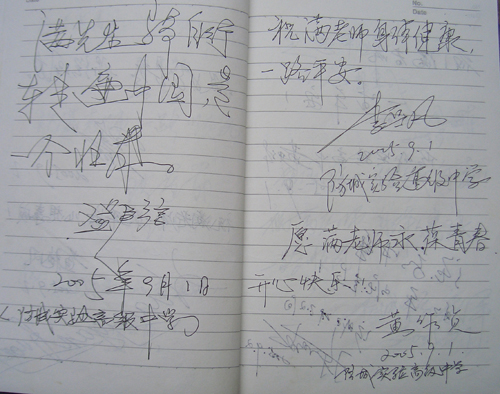 满先生骑自行
车走遍中国是
一个壮举。
2005年9月1日
(防城实验高级中学)
祝满老师身体健康,
一路平安。
2005.9.1
防城实验高级中学
愿满老师永葆青春
开心快乐
黄
2005.9.1.
防城实验高级中学